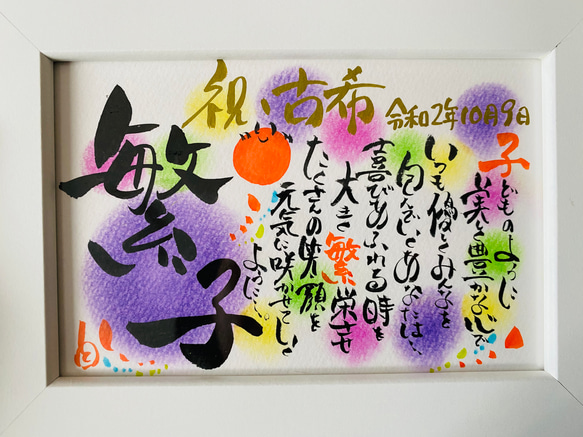 祝、古希
令和2年10月9日
子どものように
と豊かな心で
いつも優しくみんなを
包んでいくあなたは…
喜びあふれる時を
大きく繁栄させ
たくさんの笑顔を
元気に咲かせていく
ように…。
繁子